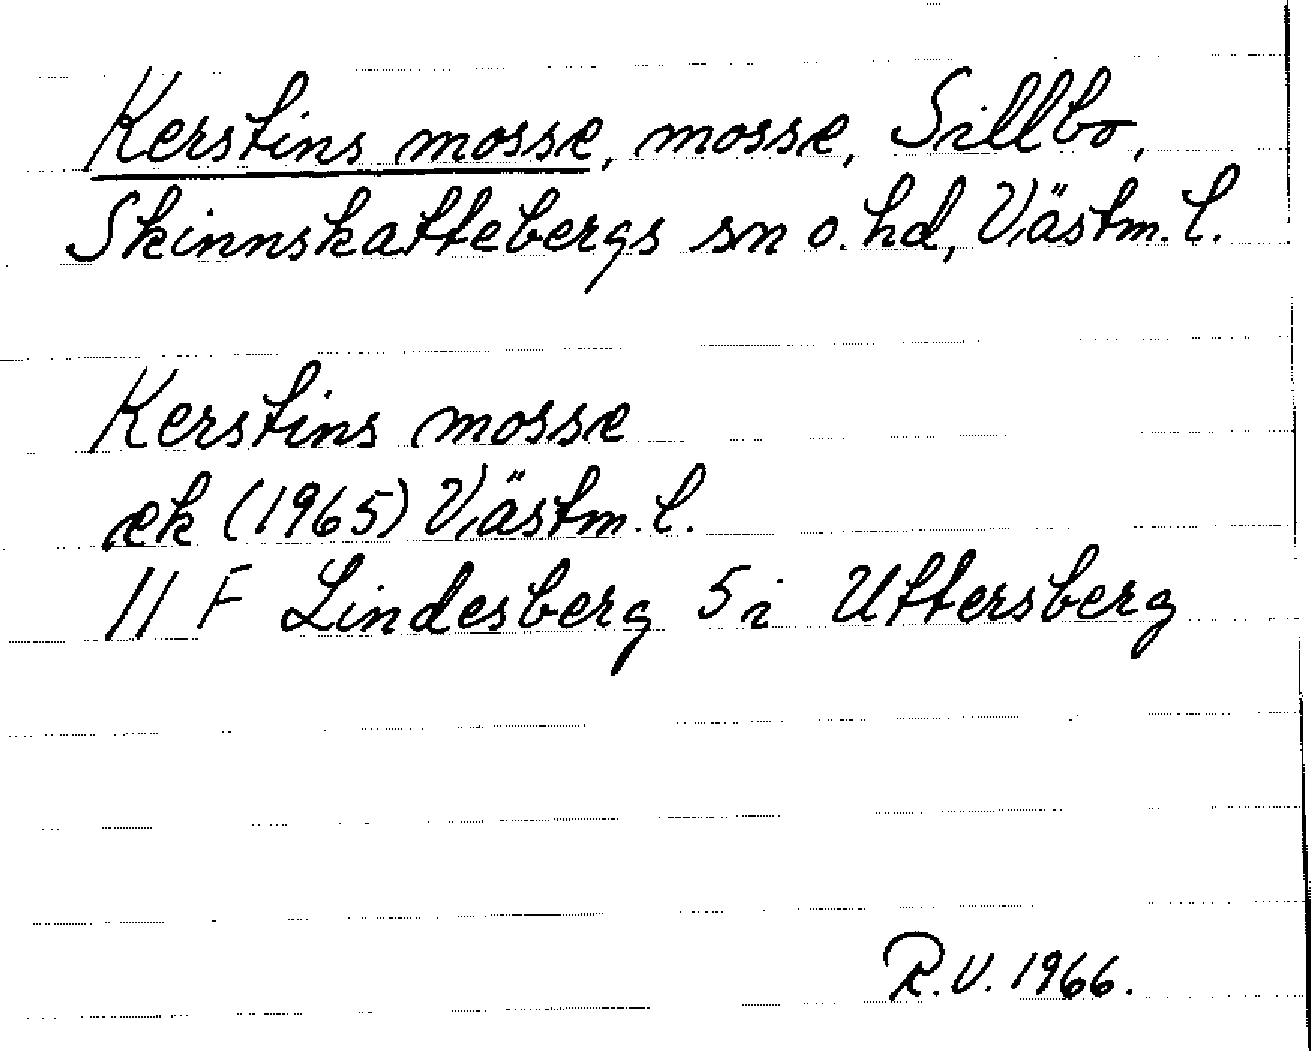 Kerstins mosse, mosse, Sillbo,
Skinnskattebergs sn o. hd, Västm. l.
Kerstins mosse
ek (1965) Västm. l.
11 F Lindesberg 5 i Uttersberg
R.V. 1966.